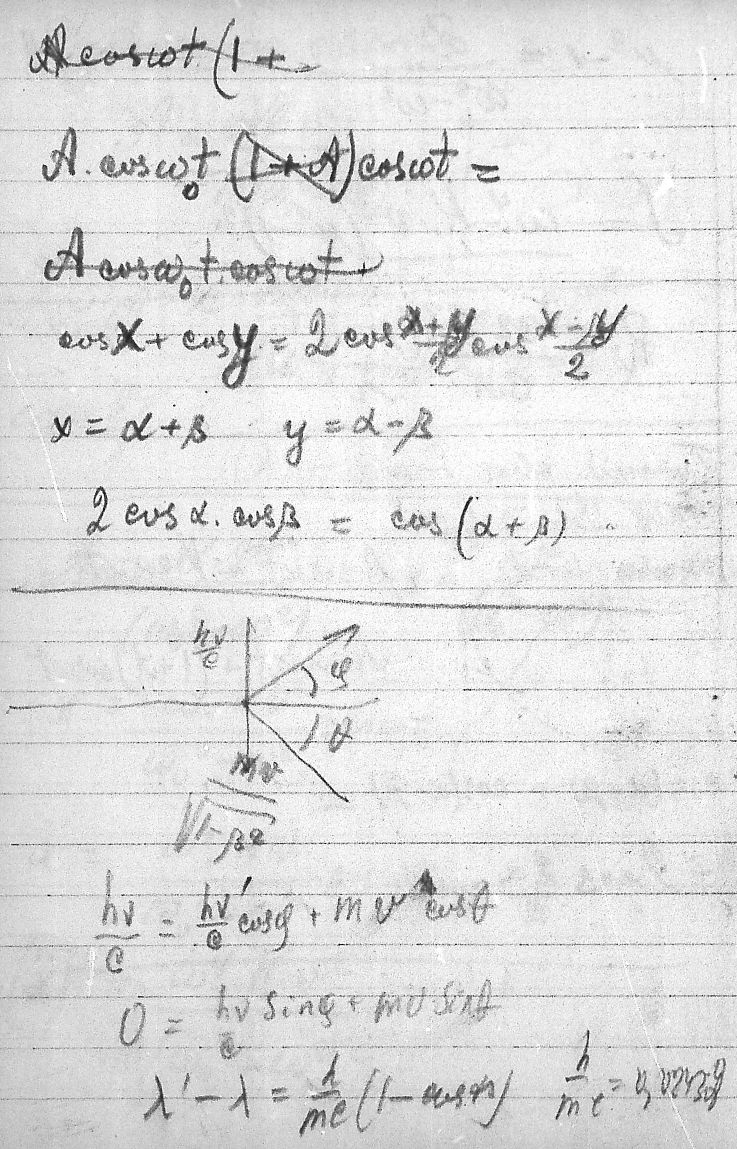 A cosωt (1 +
A. cosω₀t (1 + A) cosωt =
A cosω₀t. cosωt +
cosx + cosy = 2 cos (x+y)/2 cos (x-y)/2
x = α+β y = α-β
2 cosα. cosβ = cos (α+β)
hν/c φ
θ
mv/√(1-β²)
hν/c = hν'/c cosφ + mv cosθ
0 = hν/c sinφ + mv sinθ
λ' - λ = h/mc (1-cosφ) h/mc =